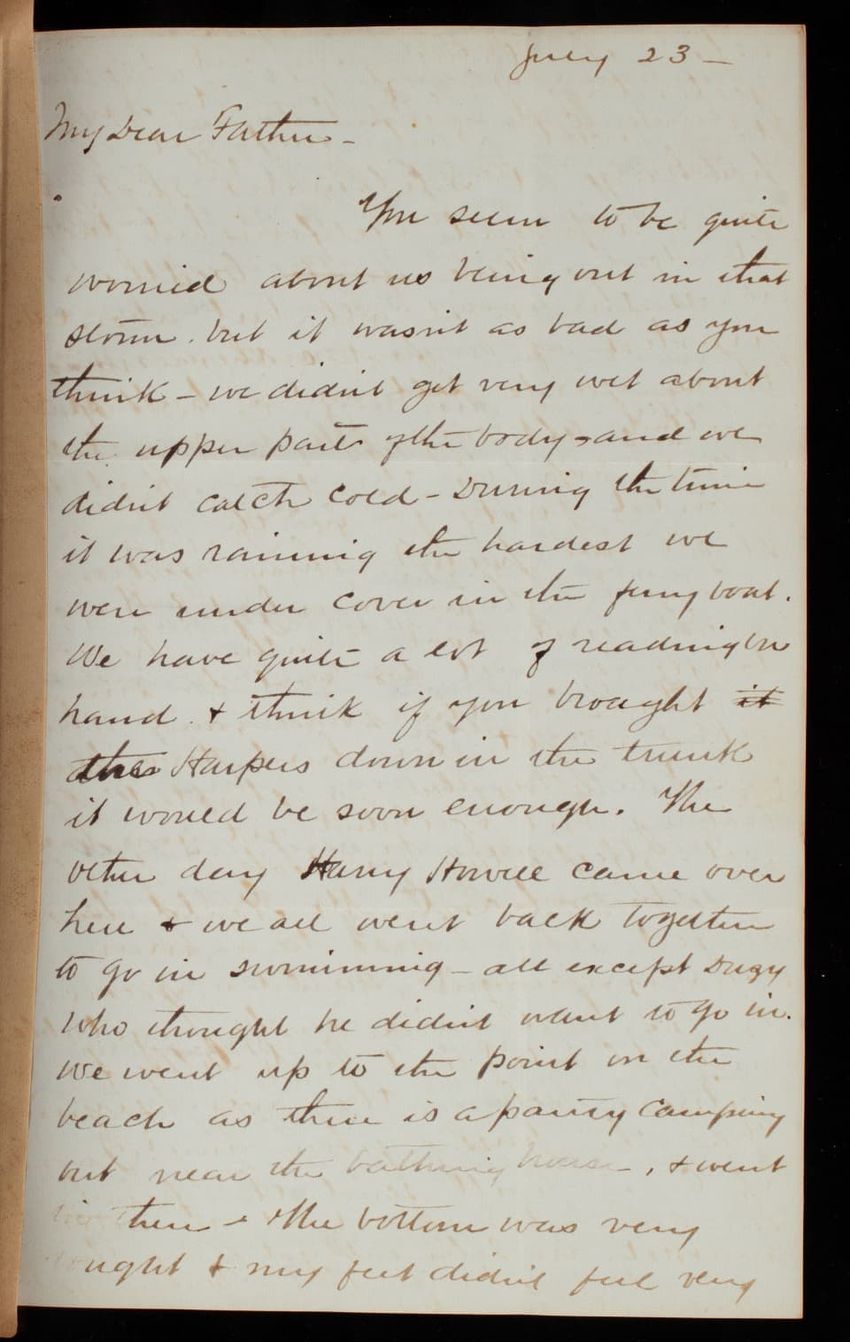 July 23 -
My Dear Father -
You seem to be quite
worried about us being out in that
storm. but it wasn't as bad as you
think - we didn't get very wet about
the upper part of the body, and we
didn't catch cold - During the time
it was raining the hardest we
were under cover in the ferry boat.
We have quite a lot of reading on
hand. & think if you brought it
the Harpers down in the trunk
it would be soon enough. The
other day Harry Howell came over
here & we all went back together
to go in swimming - all except Dugy
who thought he didn't want to go in.
We went up to the point on the
beach as there is a party camping
out near the bathing house, & went
in there - The bottom was very
rought & my feet didn't feel very